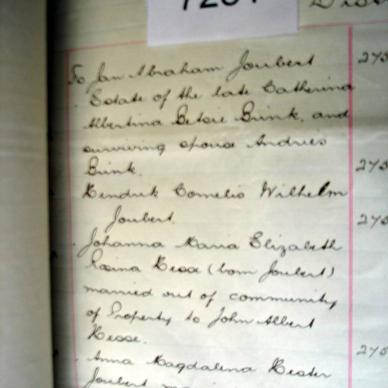 To Jan Abraham Joubert 275
Estate of the late Catherina
Albertina Betsie Brink, and
surviving spouse Andries
Brink. 275
Hendrik Cornelis Wilhelm
Joubert. 275
Johanna Maria Elizabeth
Rosina Hesse (born Joubert)
married out of community
of Property to John Albert
Hesse. 275
Anna Magdalena Hester
Joubert